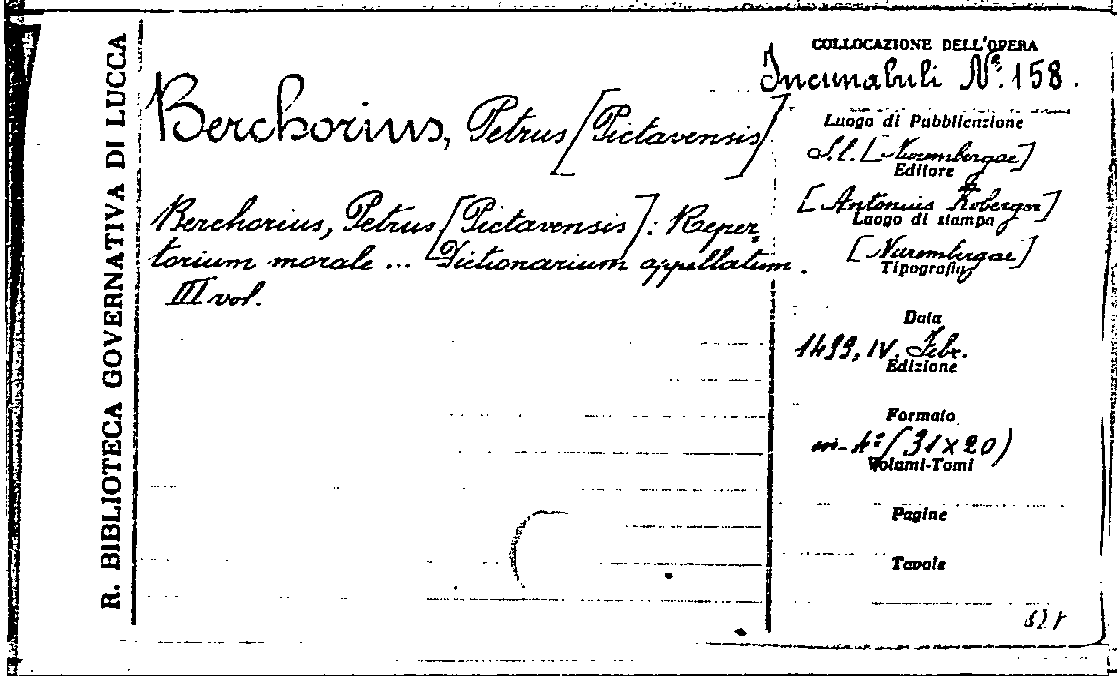 R. BIBLIOTECA GOVERNATIVA DI LUCCA
Berchorius, Petrus [Pictavensis]
Berchorius, Petrus [Pictavensis]: Reper-
torium morale ... Dictionarium appellatum.
III vol.
COLLOCAZIONE DELL'OPERA
Incunabuli Nº 158.
Luogo di Pubblicazione
S. l. [Nurembergae]
Editore
[Antonius Koberger]
Luogo di stampa
[Nurembergae]
Tipografia
Data
1499, IV. Febr.
Edizione
Formato
in-4º (31 x 20)
Volumi-Tomi
Pagine
Tavole